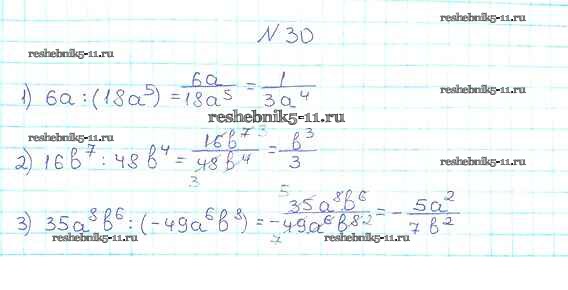 № 30
reshebnik5-11.ru
reshebnik5-11.ru
1) 6a : (18a⁵) = 6a/18a⁵ = 1/3a⁴
reshebnik5-11.ru
reshebnik5-11.ru
reshebnik5-11.ru
2) 16b⁷ : 48b⁴ = 16b⁷ ³/48b⁴ 3 = b³/3
reshebnik5-11.ru
3) 35a⁸b⁶ : (-49a⁶b⁸) = 5 35a⁸b⁶/-49a⁶b⁸ ² 7 = - 5a²/7b²
reshebnik5-11.ru
reshebnik5-11.ru